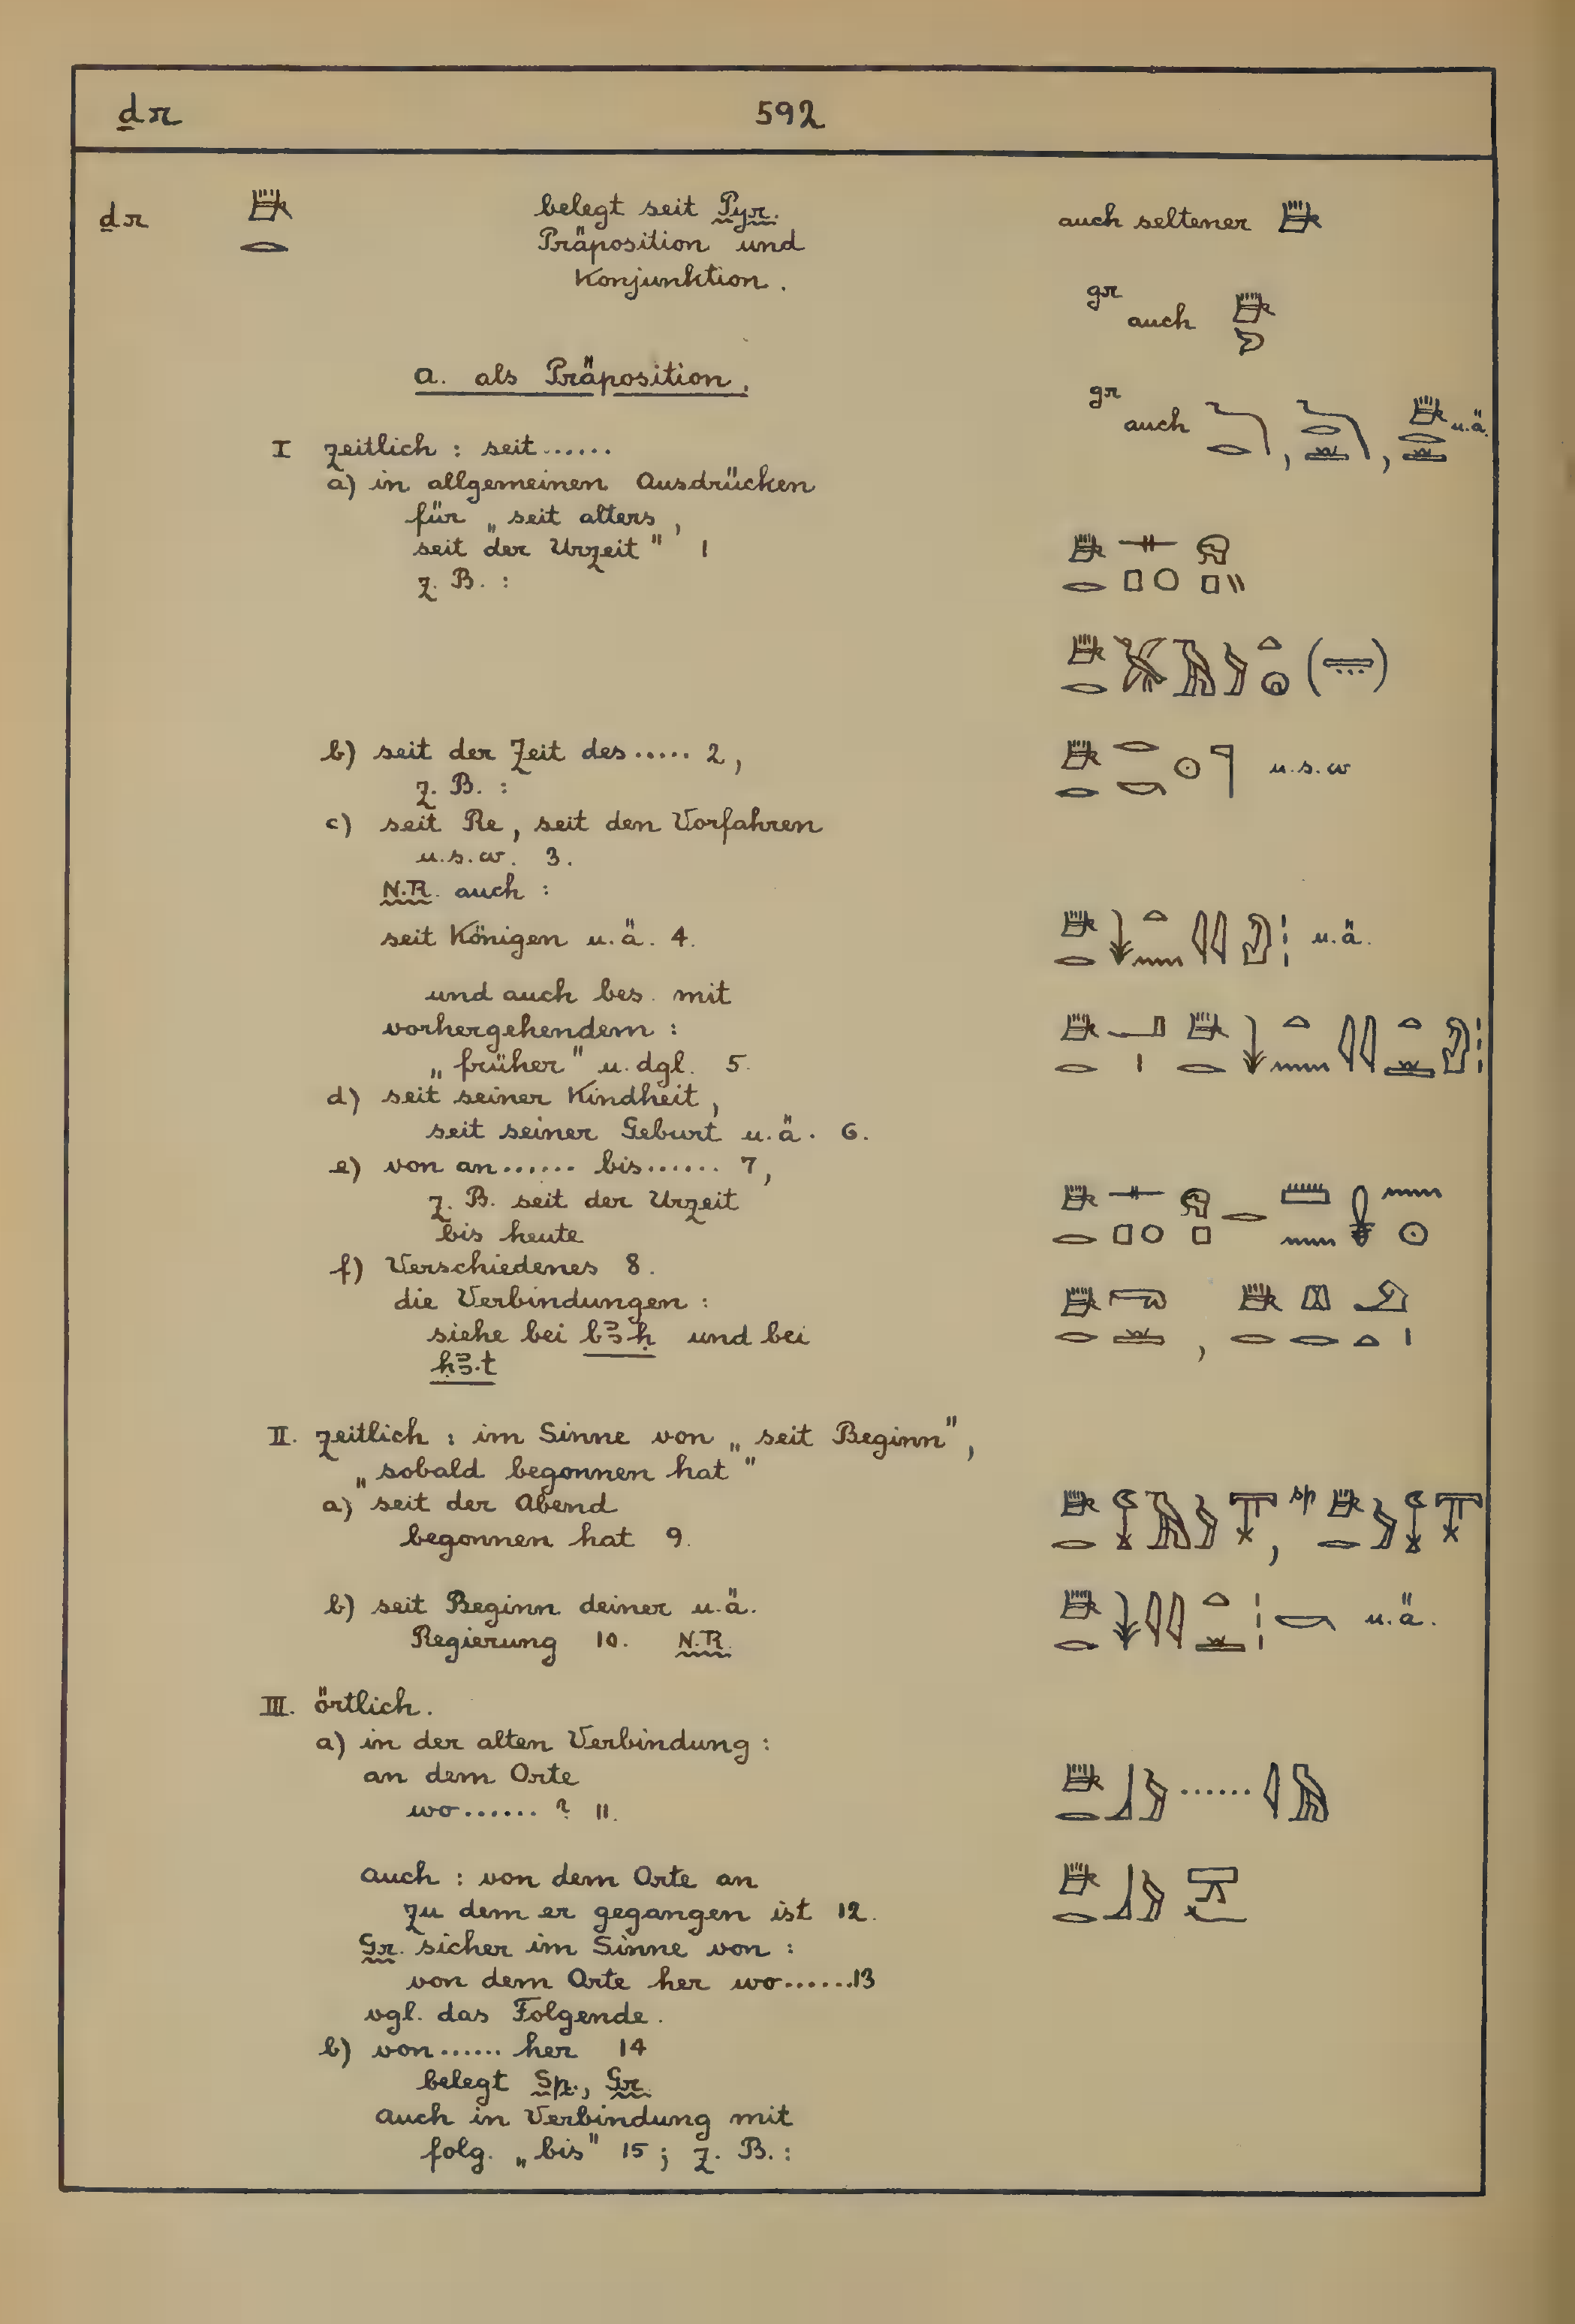 ḏr 592
ḏr belegt seit Pyr. auch seltener
Präposition und
Konjunktion.
gr auch
a. als Präposition.
gr auch , , u.ä.
I zeitlich : seit ......
a) in allgemeinen Ausdrücken
für „ seit alters,
seit der Urzeit " 1
z. B. :
b) seit der Zeit des ..... 2, u.s.w
z. B. :
c) seit Re, seit den Vorfahren
u.s.w. 3.
N.R. auch :
seit Königen u.ä. 4. u.ä.
und auch bes. mit
vorhergehendem :
„ früher " u. dgl. 5.
d) seit seiner Kindheit,
seit seiner Geburt u.ä. 6.
e) von an ...... bis ...... 7,
z. B. seit der Urzeit
bis heute
f) Verschiedenes 8.
die Verbindungen : ,
siehe bei bꜣḥ und bei
ḥꜣ.t
II. zeitlich : im Sinne von „ seit Beginn",
„ sobald begonnen hat "
a) seit der Abend , sp
begonnen hat 9.
b) seit Beginn deiner u.ä. u.ä.
Regierung 10. N.R.
III. örtlich.
a) in der alten Verbindung :
an dem Orte
wo ...... ? 11. ......
auch : von dem Orte an
zu dem er gegangen ist 12.
Gr. sicher im Sinne von :
von dem Orte her wo ......13
vgl. das Folgende.
b) von ...... her 14
belegt Sp., Gr.
auch in Verbindung mit
folg. „ bis" 15 ; z. B. :